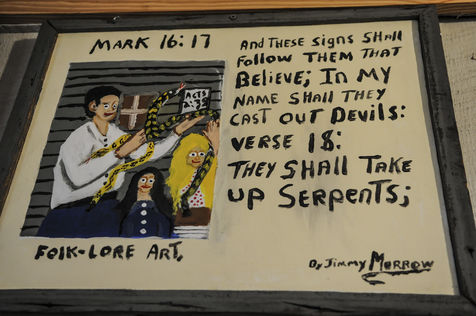 MARK 16:17
AND THESE SIGNS SHALL
FOLLOW THEM THAT
BELIEVE; IN MY
NAME SHALL THEY
CAST OUT DEVILS:
VERSE 18:
THEY SHALL TAKE
UP SERPENTS;
ACTS
2:38
FOLK-LORE ART.
By JIMMY MORROW